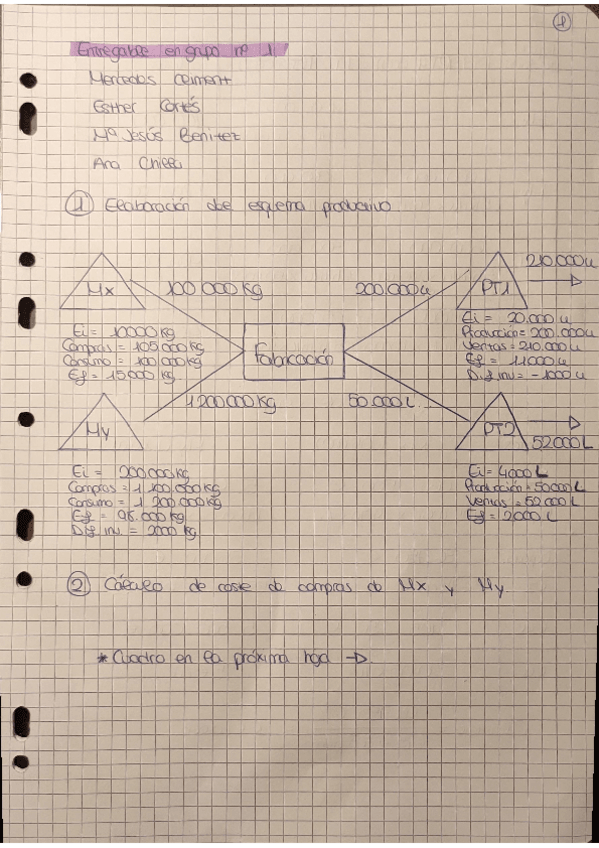 1
Entregable en grupo nº 1
Mercedes Climent
Esther Cortés
Mª Jesús Benitez
Ana Chilla
1 Elaboración del esquema productivo
Mx
100.000 kg
200.000 u
PT1
210.000 u
Fabricación
Ei = 10000 kg
Compras = 105000 kg
Consumo = 100.000 kg
Ef = 15000 kg
Ei = 20.000 u
Producción = 200.000 u
Ventas = 210.000 u
Ef = 11000 u
Dif. inv = -1000 u
My
1200000 kg
50.000 L
PT2
52000 L
Ei = 200.000 kg
Compras = 1 100.000 kg
Consumo = 1 200.000 kg
Ef = 98.000 kg
Dif. inv. = 2000 kg
Ei = 4000 L
Producción = 50000 L
Ventas = 52.000 L
Ef = 2000 L
2 Cálculo de coste de compras de Mx y My
* Cuadro en la próxima hoja →